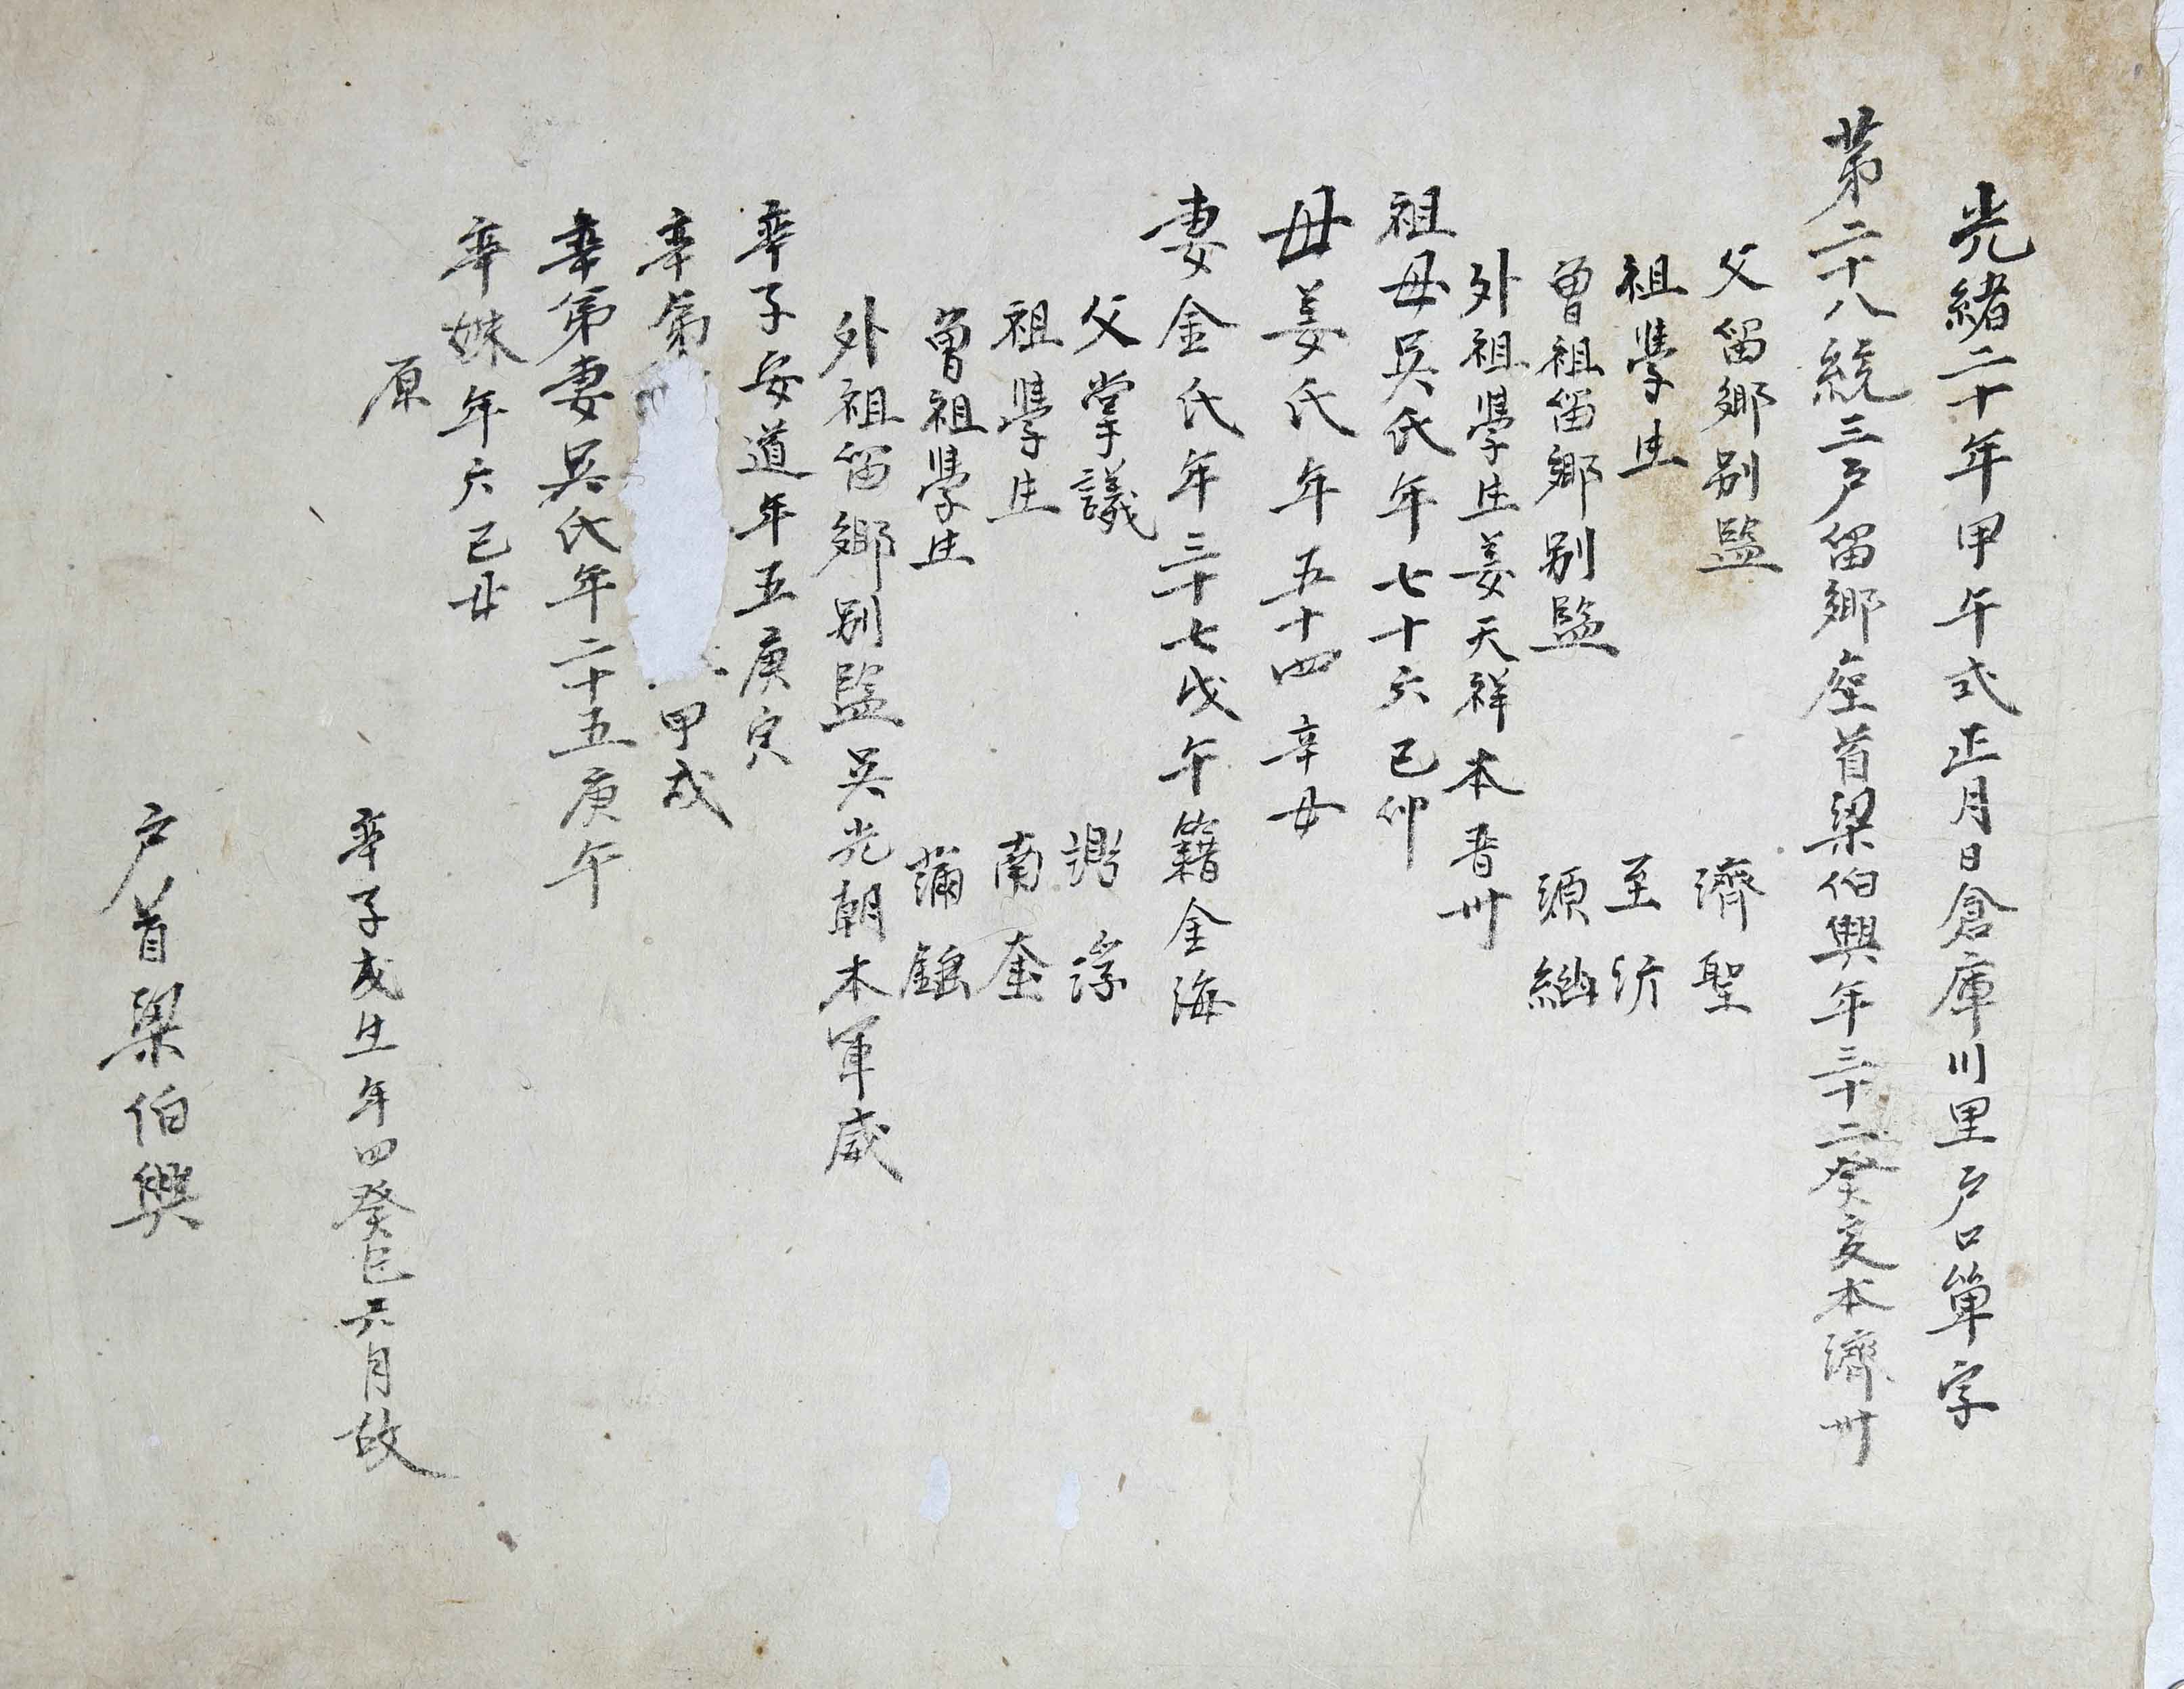 光緒二十年甲午式正月日倉庫川里戶口單字
第二十八統三戶留鄉座首梁伯興年三十二癸亥本濟州
父留鄉別監 濟聖
祖學生 至沂
曾祖留鄉別監 須
外祖學生姜天祥本晋州
祖母吳氏年七十六己卯
母姜氏年五十四辛丑
妻金氏年三十七戊午籍金海
父掌議
祖學生 南奎
曾祖學生
外祖留鄉別監吳光朝本軍威
率子安道年五庚寅
率弟 甲戌
率弟妻吳氏年二十五庚午
率妹年六己丑
原
率子戊生年四癸巳六月故
戶首梁伯興